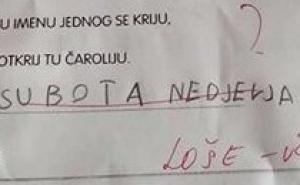 U IMENU JEDNOG SE KRIJU,
OTKRIJ TU ČAROLIJU.
SUBOTA NEDJELJA
LOŠE -